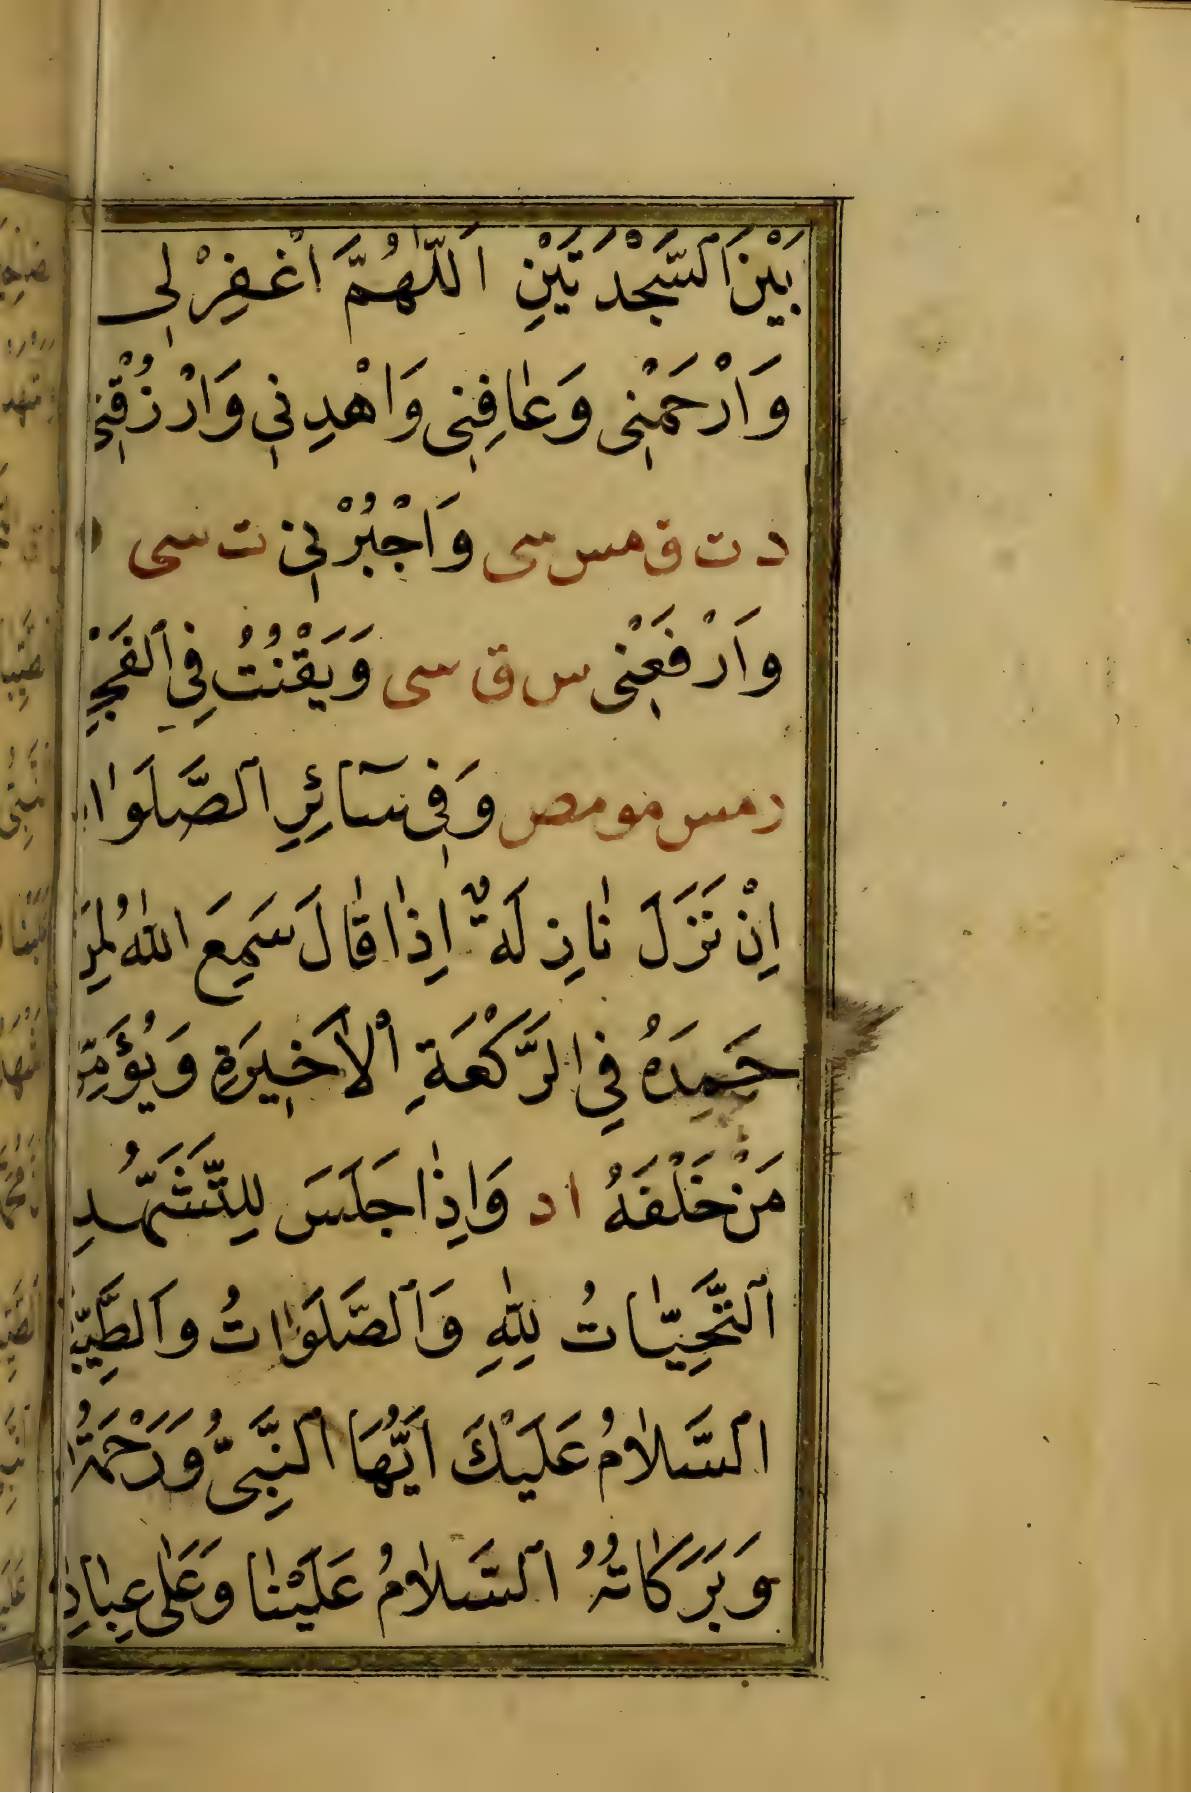 بَيْنَ ٱلسَّجْدَتَيْنِ اَللّٰهُمَّ اغْفِرْ لِي
وَارْحَمْنِي وَعَافِنِي وَاهْدِنِي وَارْزُقْنِي
د ت ق مس سى وَاجْبُرْنِي ت سى
وَارْفَعْنِي س ق سى وَيَقْنُتُ فِي ٱلفَجْرِ
ر مس مو مص وَفِي سَآئِرِ ٱلصَّلَوَاتِ
اِنْ نَزَلَ نَازِلَةٌ اِذَا قَالَ سَمِعَ اللّٰهُ لِمَنْ
حَمِدَهُ فِي الرَّكْعَةِ ٱلْاَخِيرَةِ وَيُؤَمِّنُ
مَنْ خَلْفَهُ ا د وَاِذَا جَلَسَ لِلتَّشَهُّدِ
ٱلتَّحِيَّاتُ لِلّٰهِ وَٱلصَّلَوَاتُ وَٱلطَّيِّبَاتُ
ٱلسَّلَامُ عَلَيْكَ اَيُّهَا ٱلنَّبِيُّ وَرَحْمَةُ
وَبَرَكَاتُهُ ٱلسَّلَامُ عَلَيْنَا وَعَلٰى عِبَادِ